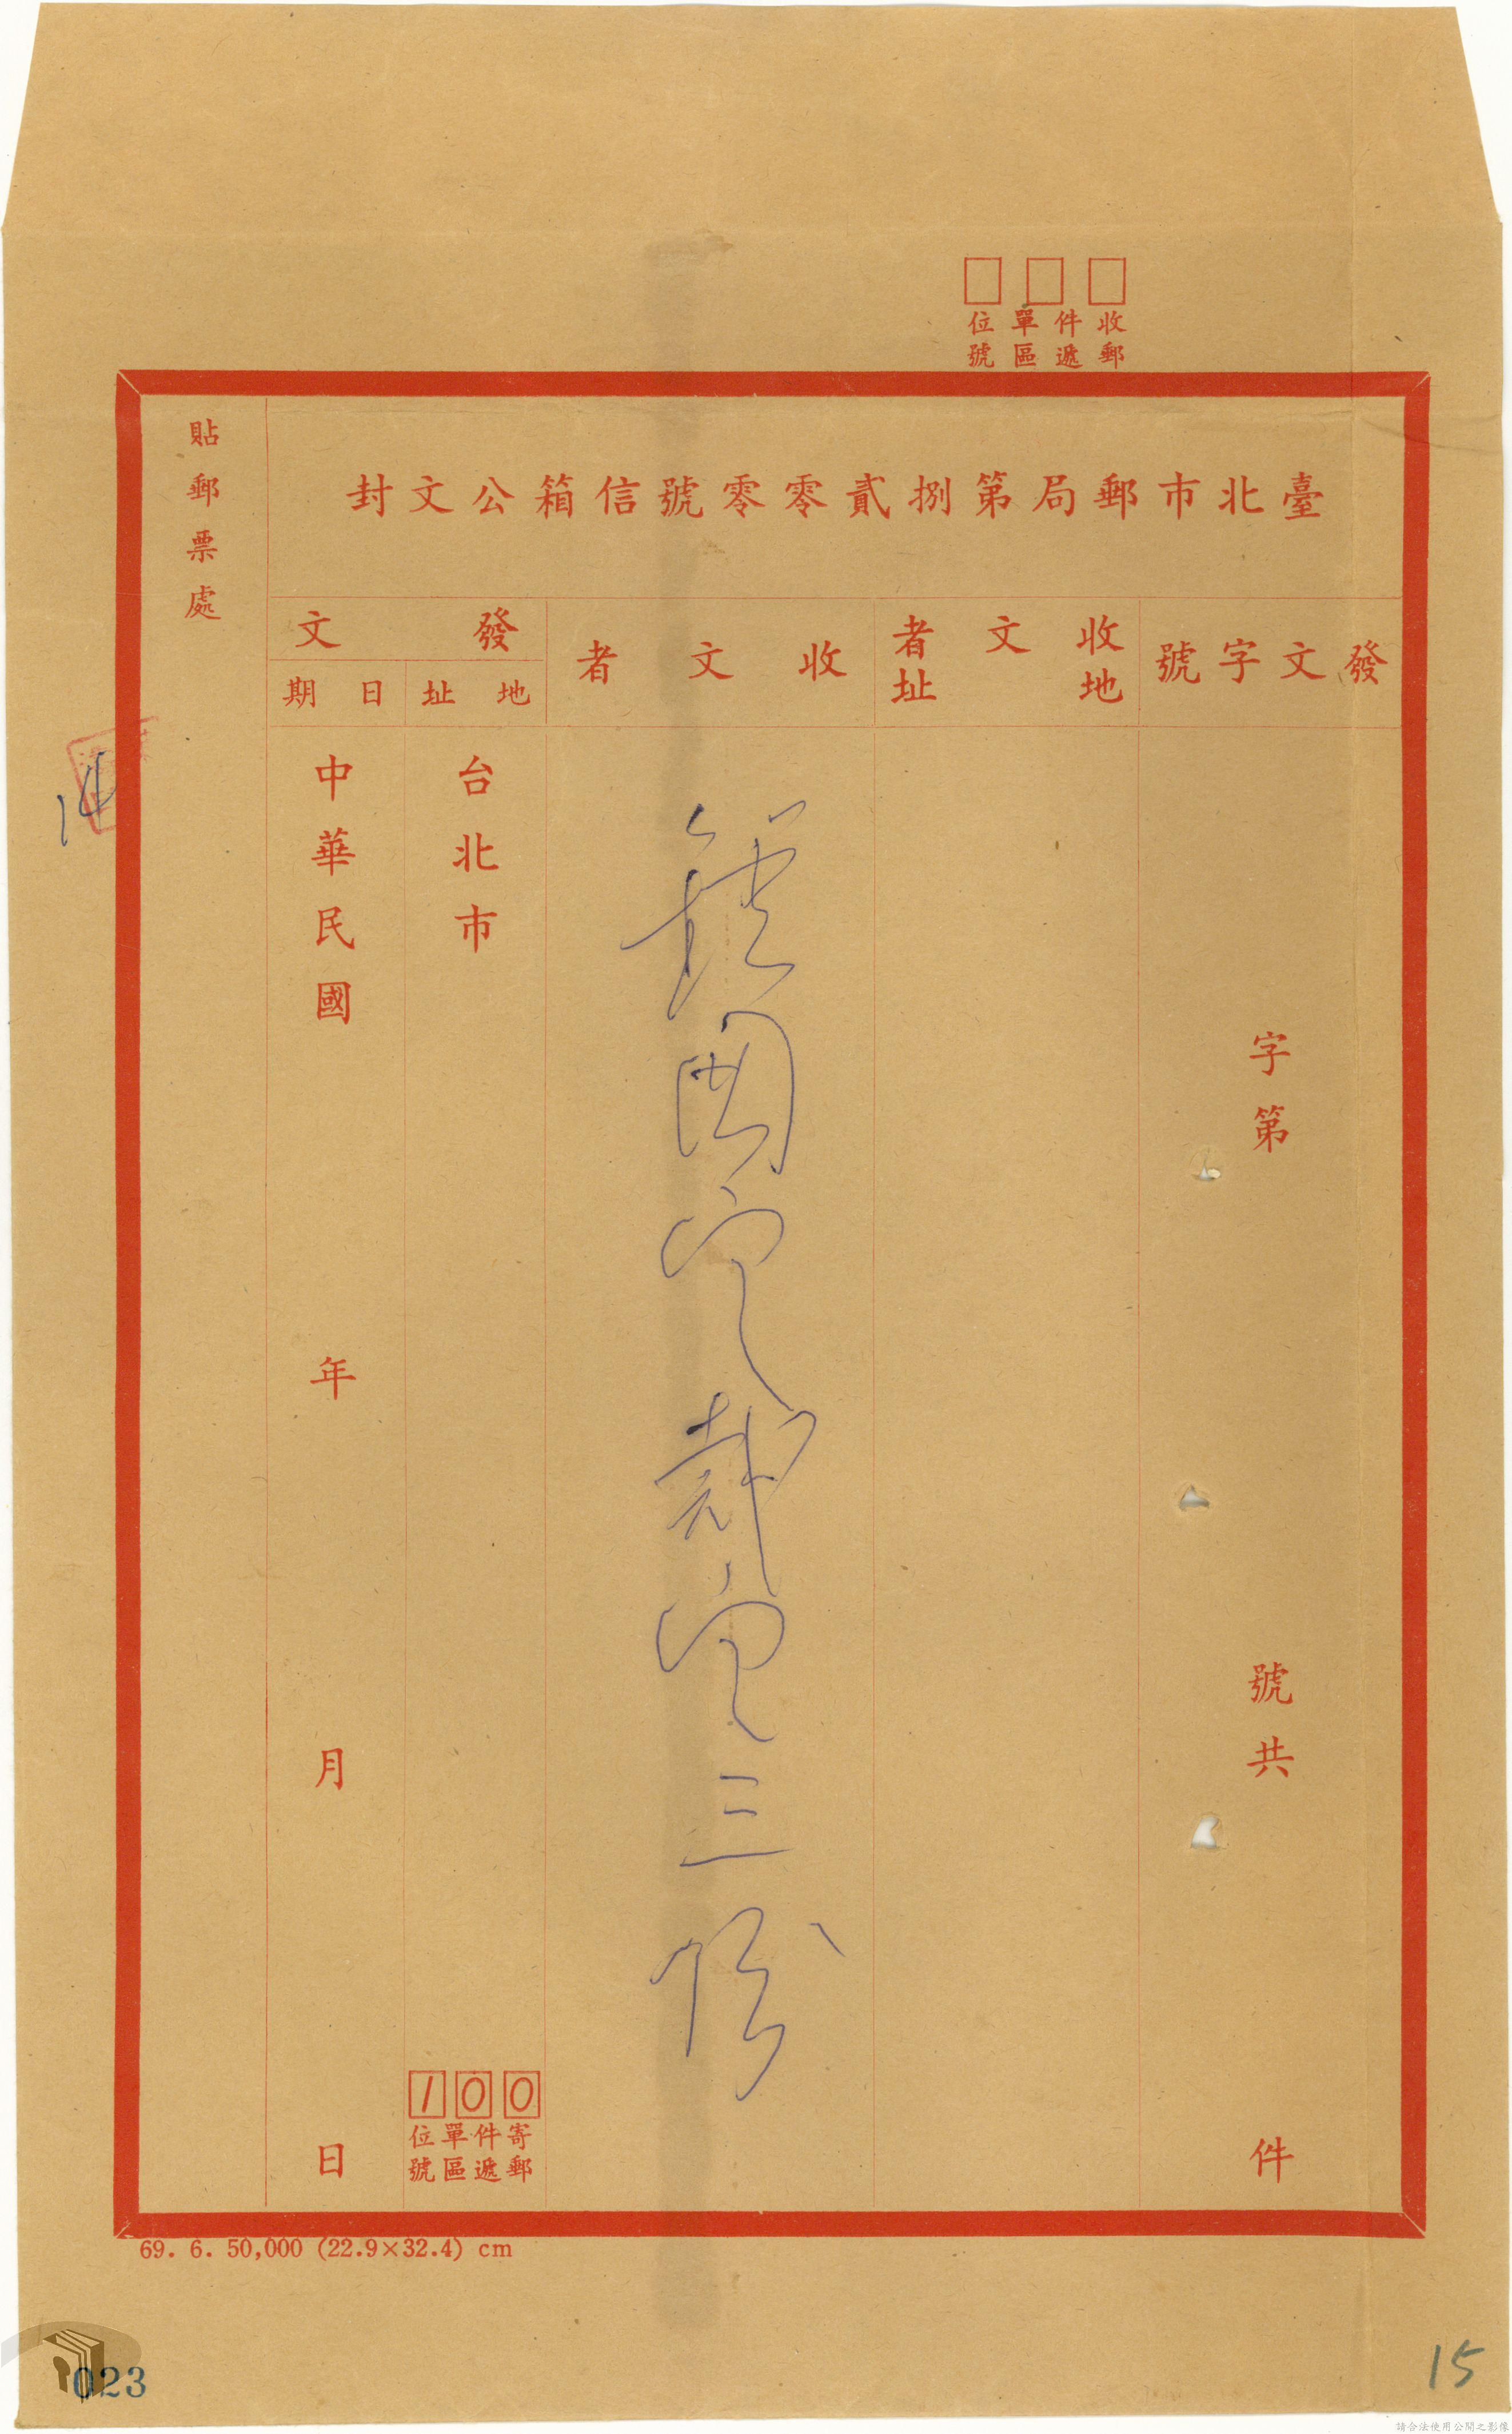 收件單位
郵遞區號
臺北市郵局第捌貳零零號信箱公文封
發文字號
字第 號共 件
收文者
地址
收文者
三
發文
地址
台北市
100
寄件單位
郵遞區號
日期
中華民國 年 月 日
貼郵票處
14
69. 6. 50,000 (22.9×32.4) cm
023
15
請合法使用公開之影像